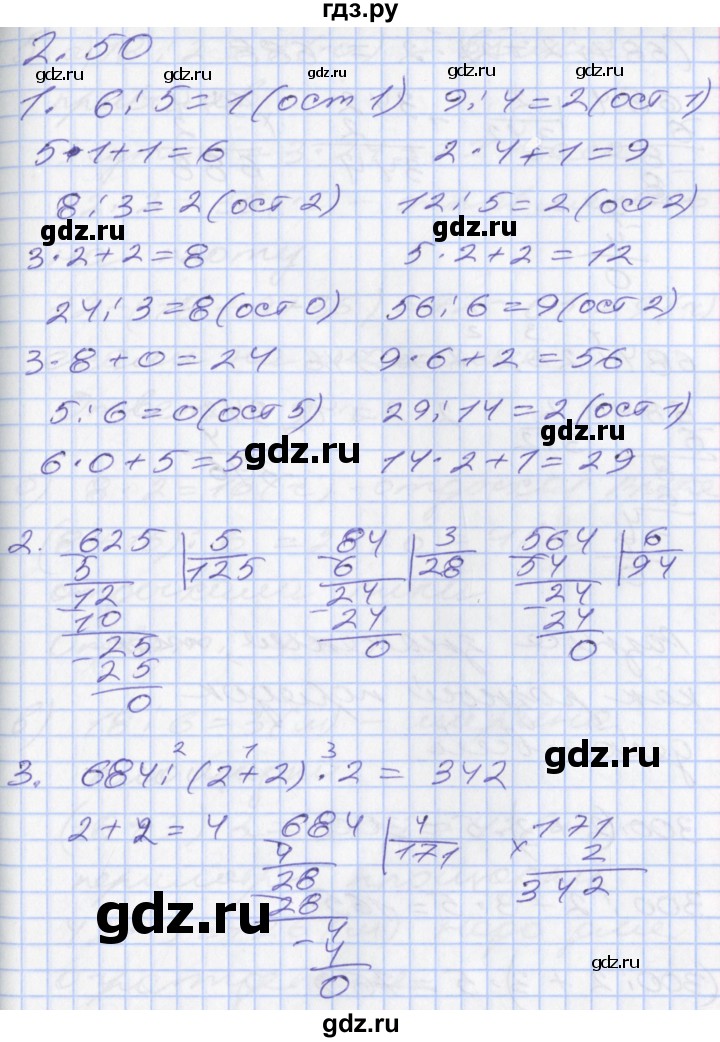 гдз.ру
2.50
gdz.ru gdz.ru gdz.ru
1. 6 : 5 = 1 (ост 1) 9 : 4 = 2 (ост 1)
5 · 1 + 1 = 6 2 · 4 + 1 = 9
8 : 3 = 2 (ост 2) 12 : 5 = 2 (ост 2)
gdz.ru gdz.ru
3 · 2 + 2 = 8 5 · 2 + 2 = 12
24 : 3 = 8 (ост 0) 56 : 6 = 9 (ост 2)
3 · 8 + 0 = 24 9 · 6 + 2 = 56
5 : 6 = 0 (ост 5) 29 : 14 = 2 (ост 1)
gdz.ru gdz.ru
6 · 0 + 5 = 5 14 · 2 + 1 = 29
2. 625 | 5 84 | 3 564 | 6
5 125 6 28 54 94
- 12 - 24 - 24
10 24 24
- 25 0 0
25
0
gdz.ru
2 1 3
3. 684 : (2 + 2) · 2 = 342
2 + 2 = 4 684 | 4 171
4 171 x 2
28 342
- 28
gdz.ru
4
- 4
gdz.ru
0
gdz.ru